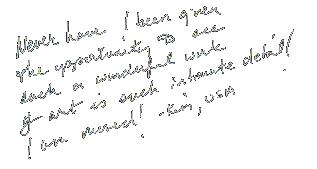 Never have I been given
the opportunity to see
such a wonderful work
of art in such intimate detail!
I am moved! -Kim, USA